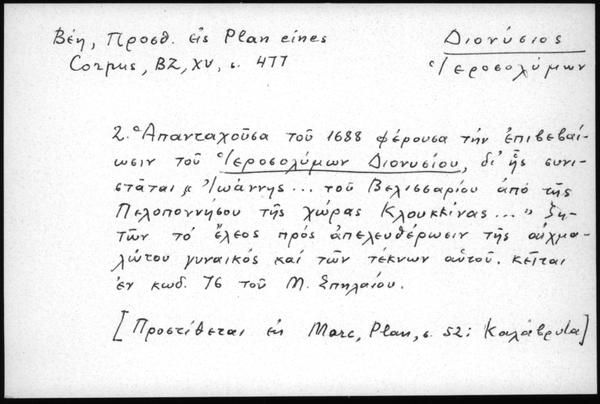 Βέη, Προσθ. εἰς Plan eines
Corpus, BZ, XV, σ. 477
Διονύσιος
Ἱεροσολύμων
2. Ἁπανταχοῦσα τοῦ 1688 φέρουσα τὴν ἐπιβεβαί
ωσιν τοῦ Ἱεροσολύμων Διονυσίου, δι' ἧς συνι
στᾶται "Ἰωάννης... τοῦ Βελισσαρίου ἀπὸ τῆς
Πελοποννήσου τῆς χώρας Κλουκκίνας..." ζη-
τῶν τὸ ἔλεος πρὸς ἀπελευθέρωσιν τῆς αἰχμα-
λώτου γυναικὸς καὶ τῶν τέκνων αὐτοῦ. κεῖται
ἐν κωδ. 76 τοῦ Μ. Σπηλαίου.
[Προστίθεται ἐν Marc, Plan, σ. 52: Καλάβρυτα]